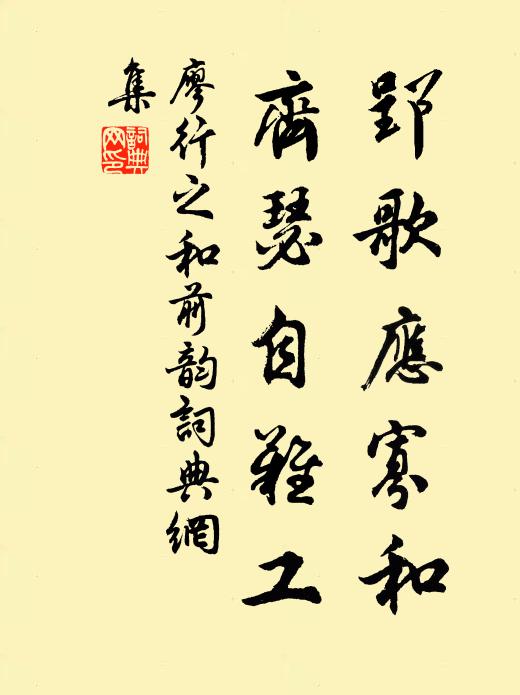 郢歌應寡和
齊瑟自難工
廖行之和前韵詞典網
集
詞典
网印